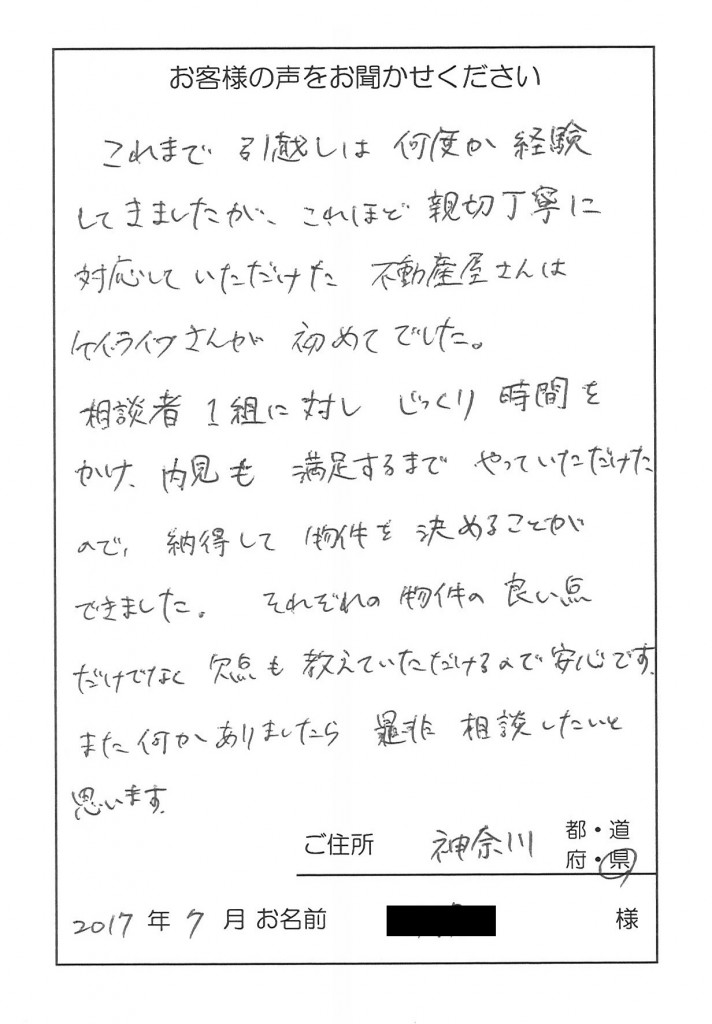 お客様の声をお聞かせください
これまで 引越しは 何度か 経験
してきましたが、これほど 親切丁寧に
対応して いただけた 不動産屋さんは
ケイライフさんが 初めてでした。
相談者 1組に対し じっくり 時間を
かけ、内見も 満足するまで やっていただけた
ので、納得して 物件を 決めることが
できました。 それぞれの 物件の 良い点
だけでなく 欠点も 教えていただけるので安心です。
また何かありましたら 是非 相談したいと
思います。
ご住所 神奈川 都・道
府・県
2017 年 7 月 お名前 様